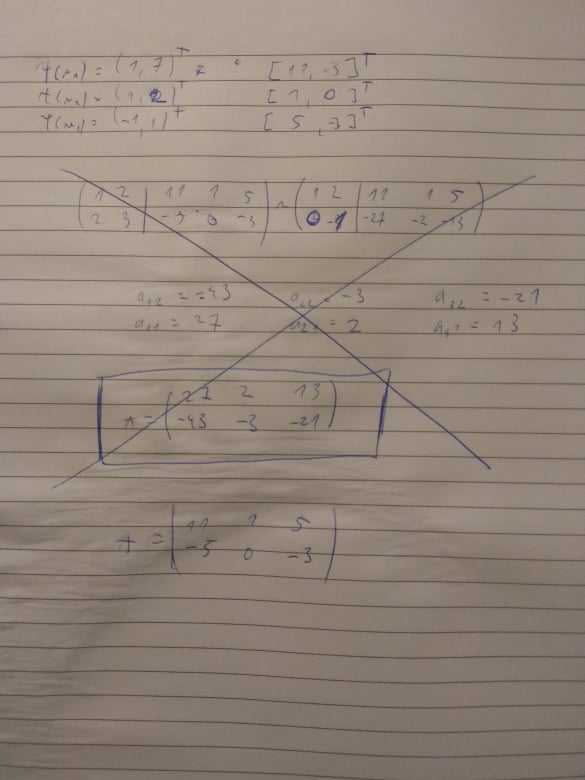 φ(u₁) = (1, 7)ᵀ [11, -5]ᵀ
φ(u₂) = (1, 2)ᵀ [1, 0]ᵀ
φ(u₃) = (-1, 1)ᵀ [5, -3]ᵀ
( 1 2 | 11 1 5 ) ~ ( 1 2 | 11 1 5 )
( 2 3 | -5 0 -3 ) ( 0 -1 | -27 -2 -13 )
a₁₂ = -43 a₂₂ = -3 a₃₂ = -21
a₁₁ = 27 a₂₁ = 2 a₃₁ = 13
A = ( 27 2 13 )
( -43 -3 -21 )
A = ( 11 1 5 )
( -5 0 -3 )